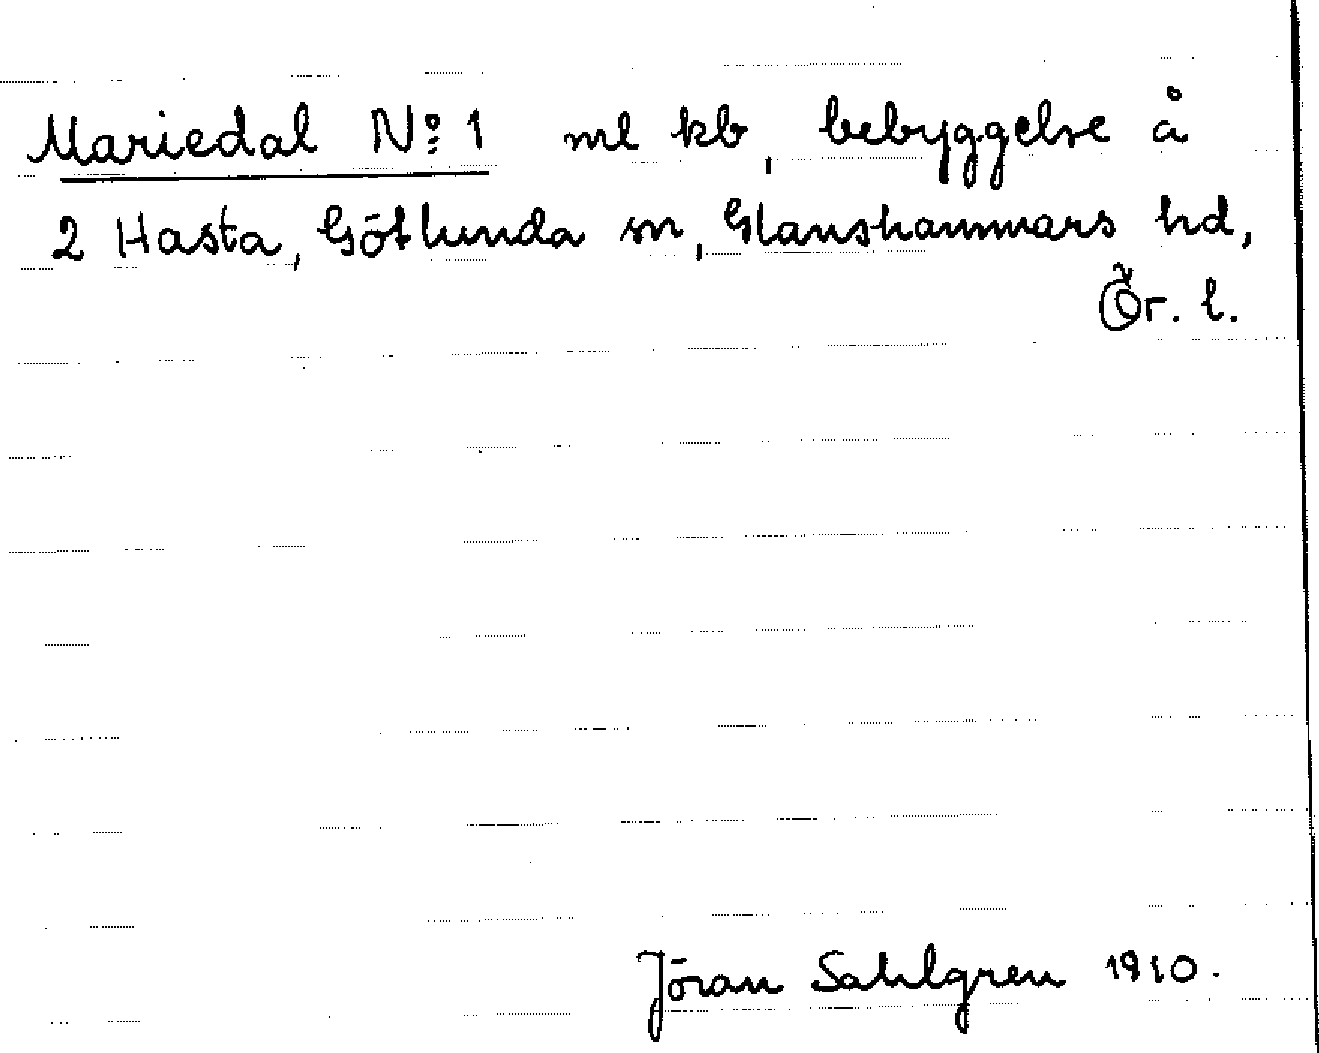 Mariedal No: 1 ml kb, bebyggelse å
2 Hasta, Götlunda sn, Glanshammars hd,
Ör. l.
Jöran Sahlgren 1910.